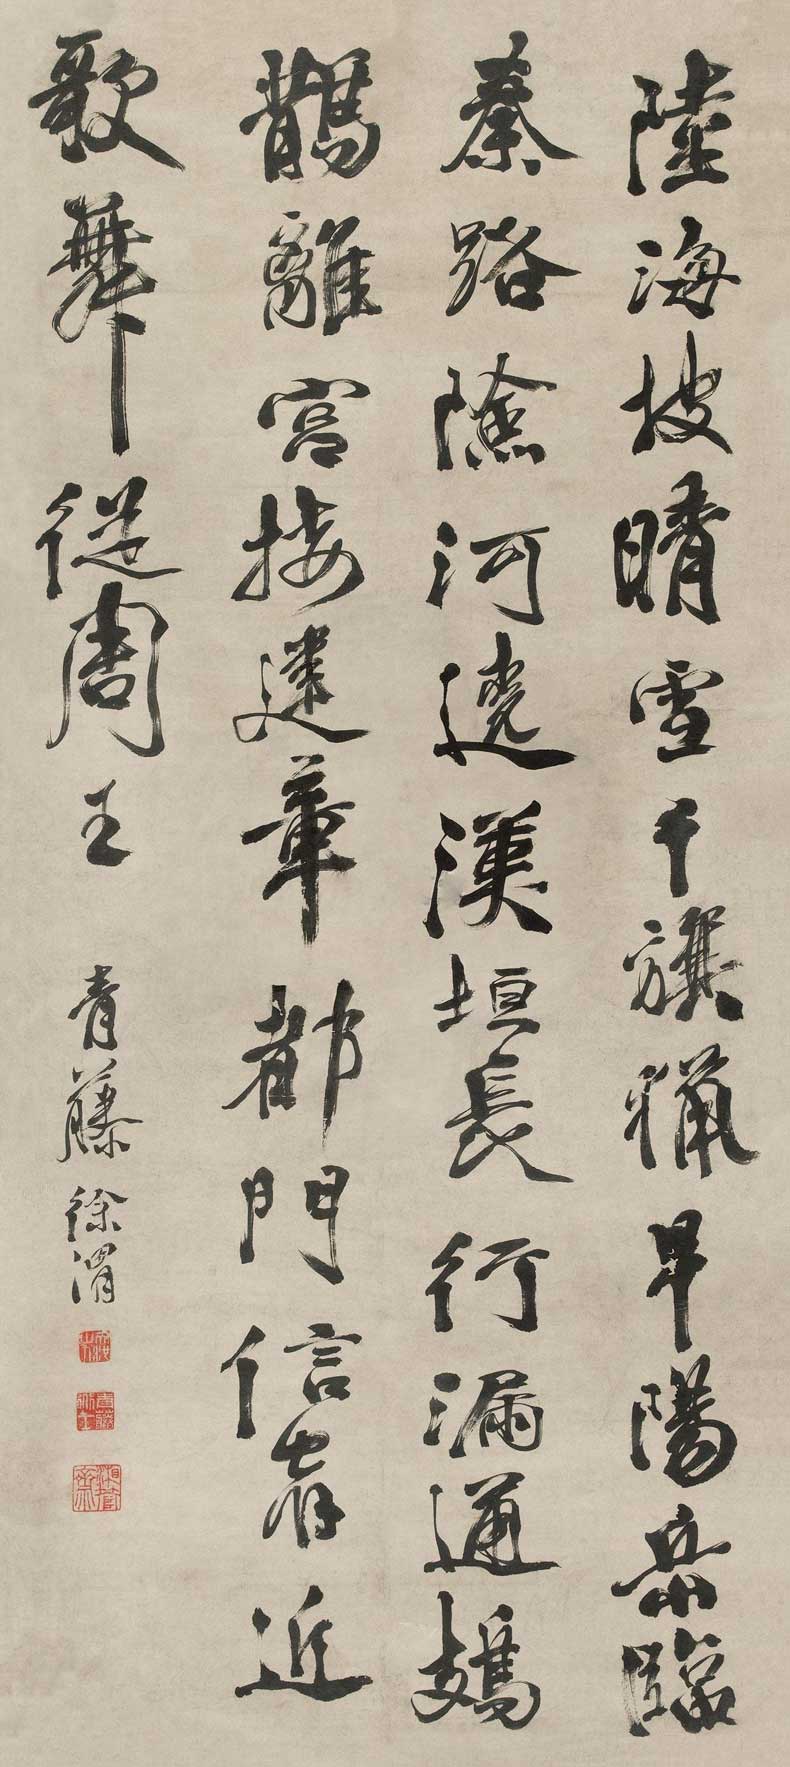 陸海披晴雪千旗獵早陽岳臨
秦路險河遶漢垣長行漏通鳷
鵲離宮接建章都門信宵近
歌舞從周王
青藤徐渭
湘管齋